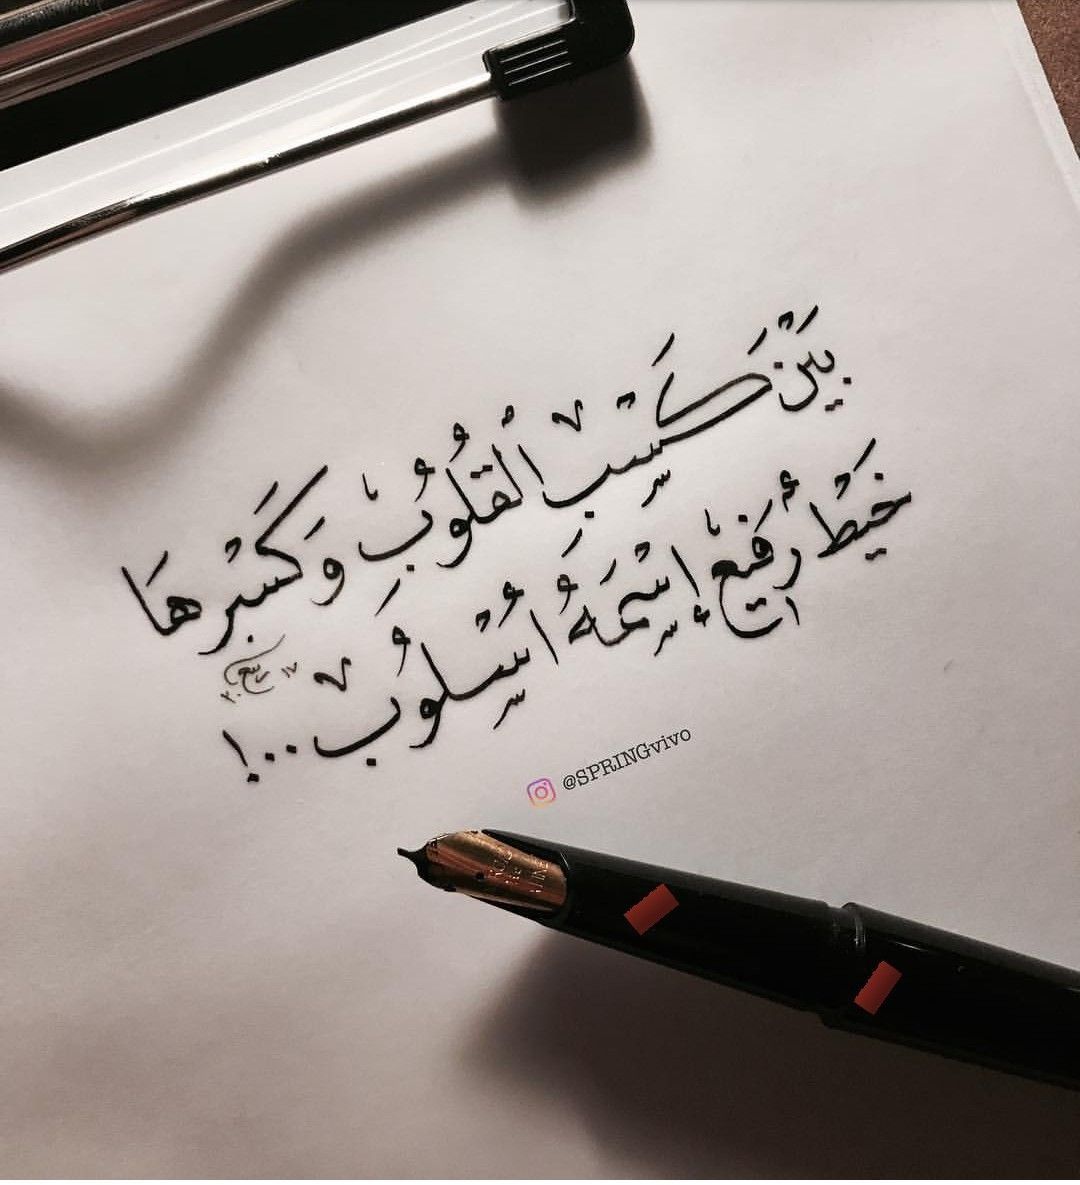 بَيْنَ كَسْبِ ٱلْقُلُوبِ وَكَسْرِهَا
خَيْطٌ رَفِيعٌ إِسْمُهُ أُسْلُوبٌ ..!
ربيع
@SPRINGvivo